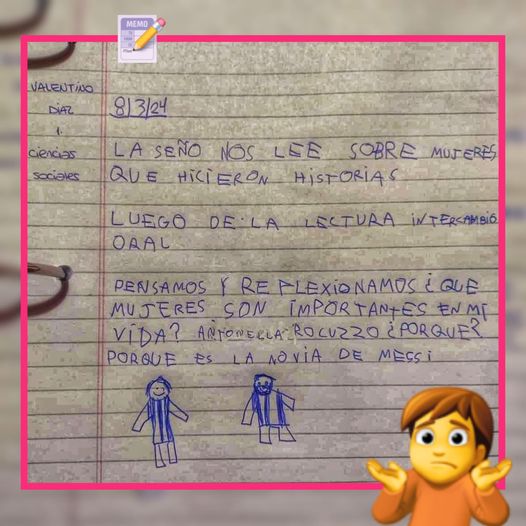 MEMO
VALENTINO
DIAZ
1.
ciencias
sociales
8/3/24
LA SEÑO NOS LEE SOBRE MUJERES
QUE HICIERON HISTORIAS
LUEGO DE LA LECTURA INTERCAMBIO
ORAL
PENSAMOS Y REFLEXIONAMOS ¿ QUE
MUJERES SON IMPORTANTES EN MI
VIDA? ANTONELLA ROCUZZO ¿PORQUE?
PORQUE ES LA NOVIA DE MESSI